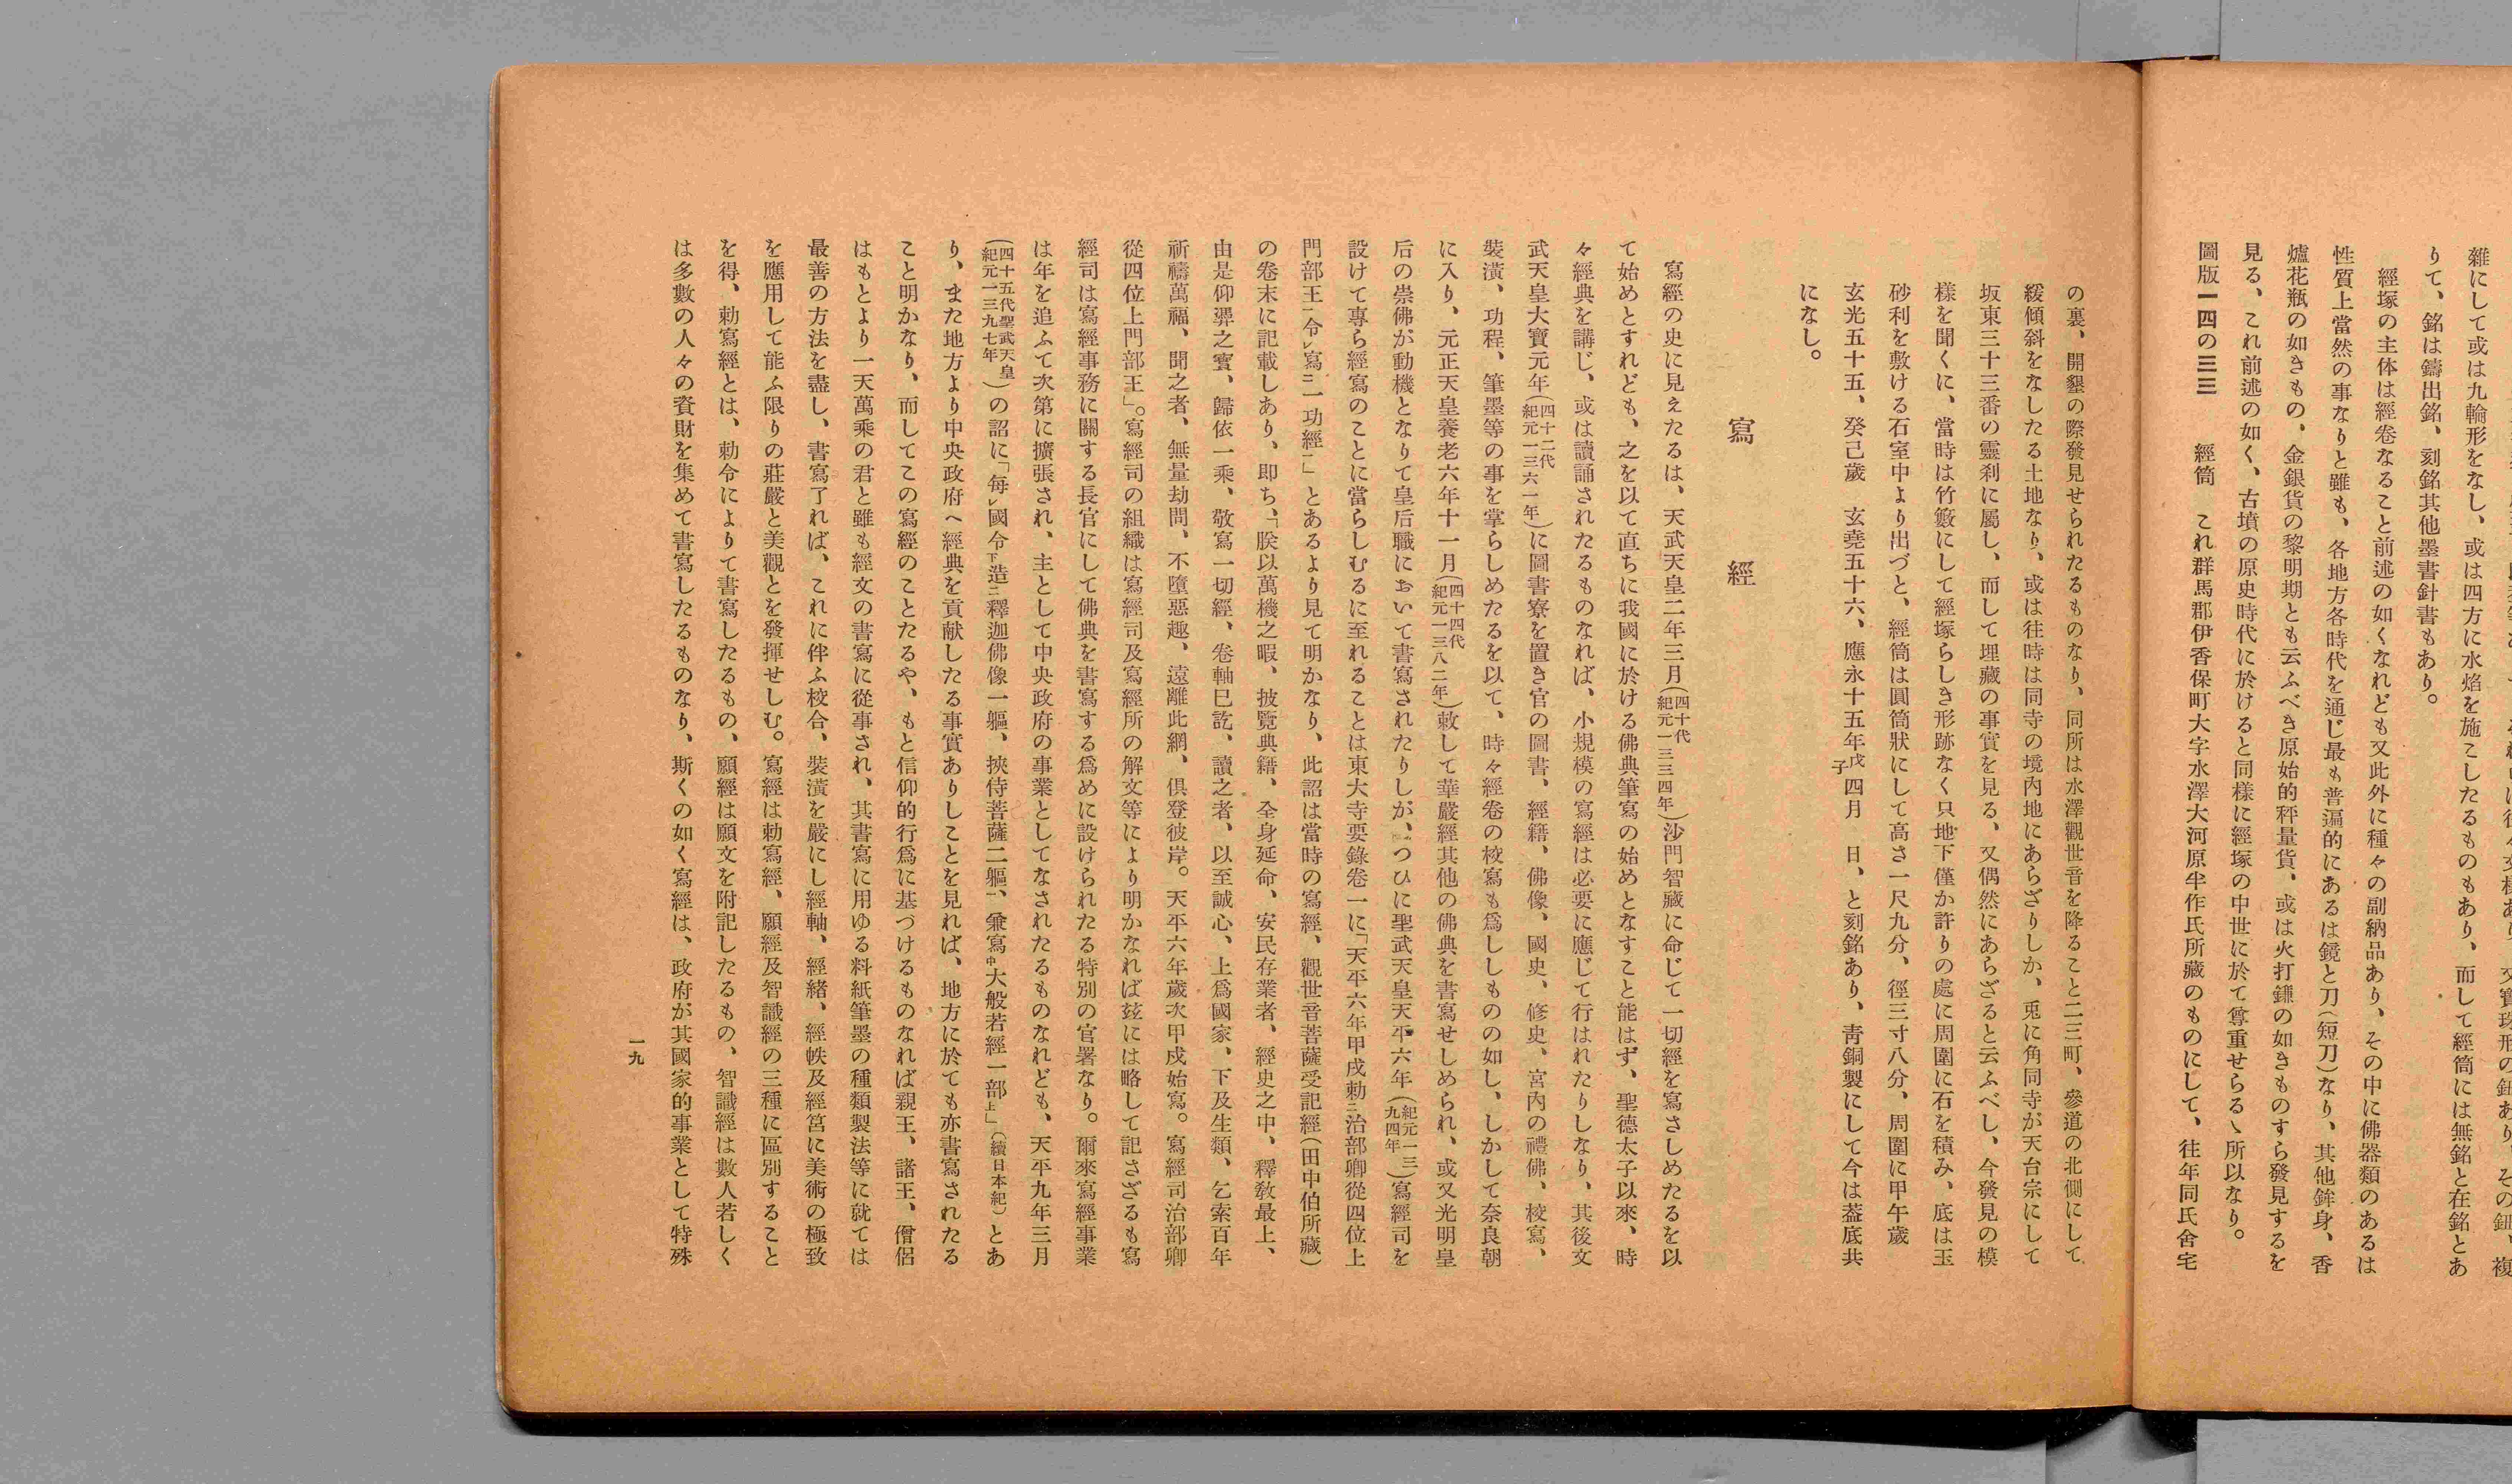 雜にして或は九輪形をなし、或は四方に水焰を施こしたるものもあり、而して經筒には無銘と在銘とあ
りて、銘は鑄出銘、刻銘其他墨書針書もあり。
經塚の主体は經卷なること前述の如くなれども又此外に種々の副納品あり、その中に佛器類のあるは
性質上當然の事なりと雖も、各地方各時代を通じ最も普遍的にあるは鏡と刀(短刀)なり、其他鉾身、香
爐花瓶の如きもの、金銀貨の黎明期とも云ふべき原始的秤量貨、或は火打鎌の如きものすら發見するを
見る、これ前述の如く、古墳の原史時代に於けると同樣に經塚の中世に於て尊重せらるゝ所以なり。
圖版一四の三三　經筒　これ群馬郡伊香保町大字水澤大河原半作氏所藏のものにして、往年同氏舍宅
の裏、開墾の際發見せられたるものなり、同所は水澤觀世音を降ること二三町、參道の北側にして
緩傾斜をなしたる土地なり、或は往時は同寺の境內地にあらざりしか、兎に角同寺が天台宗にして
坂東三十三番の靈刹に屬し、而して埋藏の事實を見る、又偶然にあらざると云ふべし、今發見の模
樣を聞くに、當時は竹籔にして經塚らしき形跡なく只地下僅か許りの處に周圍に石を積み、底は玉
砂利を敷ける石室中より出づと、經筒は圓筒狀にして高さ一尺九分、徑三寸八分、周圍に甲午歲
玄光五十五、癸己歲　玄堯五十六、應永十五年戊子四月　日、と刻銘あり、靑銅製にして今は葢底共
になし。
寫經
寫經の史に見えたるは、天武天皇二年三月(四十代紀元一三三四年)沙門智藏に命じて一切經を寫さしめたるを以
て始めとすれども、之を以て直ちに我國に於ける佛典筆寫の始めとなすこと能はず、聖德太子以來、時
々經典を講じ、或は讀誦されたるものなれば、小規模の寫經は必要に應じて行はれたりしなり、其後文
武天皇大寶元年(四十二代紀元一三六一年)に圖書寮を置き官の圖書、經籍、佛像、國史、修史、宮內の禮佛、校寫、
裝潢、功程、筆墨等の事を掌らしめたるを以て、時々經卷の校寫も爲ししものの如し、しかして奈良朝
に入り、元正天皇養老六年十一月(四十四代紀元一三八二年)敕して華嚴經其他の佛典を書寫せしめられ、或又光明皇
后の崇佛が動機となりて皇后職において書寫されたりしが、つひに聖武天皇天平六年(紀元一三九四年)寫經司を
設けて專ら經寫のことに當らしむるに至れることは東大寺要錄卷一に「天平六年甲戌勅㆓治部卿從四位上
門部王㆒令㆑寫㆓一功經㆒」とあるより見て明かなり、此詔は當時の寫經、觀世音菩薩受記經(田中伯所藏)
の卷末に記載しあり、即ち、「朕以萬機之暇、披覽典籍、全身延命、安民存業者、經史之中、釋敎最上、
由是仰羿之寳、歸依一乘、敬寫一切經、卷軸巳訖、讀之者、以至誠心、上爲國家、下及生類、乞索百年
祈禱萬福、聞之者、無量劫問、不墮惡趣、遠離此網、俱登彼岸。天平六年歲次甲戍始寫。寫經司治部卿
從四位上門部王」。寫經司の組織は寫經司及寫經所の解文等により明かなれば玆には略して記さざるも寫
經司は寫經事務に關する長官にして佛典を書寫する爲めに設けられたる特別の官署なり。爾來寫經事業
は年を追ふて次第に擴張され、主として中央政府の事業としてなされたるものなれども、天平九年三月
(四十五代聖武天皇紀元一三九七年)の詔に「每㆑國令㆘造㆓釋迦佛像一軀、挾侍菩薩二軀㆒、兼寫㆗大般若經一部㆖」(續日本紀)とあ
り、また地方より中央政府へ經典を貢献したる事實ありしことを見れば、地方に於ても亦書寫されたる
こと明かなり、而してこの寫經のことたるや、もと信仰的行爲に基づけるものなれば親王、諸王、僧侶
はもとより一天萬乘の君と雖も經文の書寫に從事され、其書寫に用ゆる料紙筆墨の種類製法等に就ては
最善の方法を盡し、書寫了れば、これに伴ふ校合、裝潢を嚴にし經軸、經緖、經帙及經筥に美術の極致
を應用して能ふ限りの莊嚴と美觀とを發揮せしむ。寫經は勅寫經、願經及智識經の三種に區別すること
を得、勅寫經とは、勅令によりて書寫したるもの、願經は願文を附記したるもの、智識經は數人若しく
は多數の人々の資財を集めて書寫したるものなり、斯くの如く寫經は、政府が其國家的事業として特殊
一九